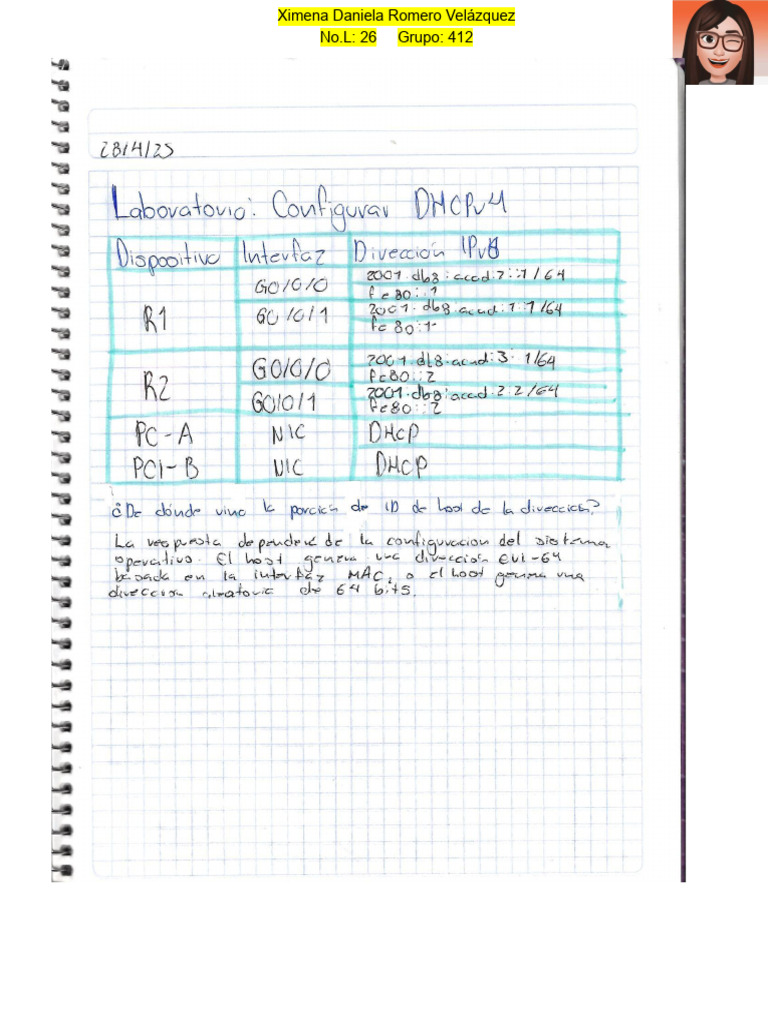 Ximena Daniela Romero Velázquez
No.L: 26 Grupo: 412
28/4/25
Laboratorio: Configurar DHCPv4
Dispositivo Interfaz Dirección IPv6
G0/0/0 2001:db8:acad:2::1/64
fe80::1
R1 G0/0/1 2001:db8:acad:1:1/64
fe80:1
R2 G0/0/0 2001:db8:acad:3:1/64
fe80::2
G0/0/1 2001:db8:acad:2:2/64
fe80::2
PC-A NIC DHCP
PC-B NIC DHCP
¿De dónde vino la porción de ID de host de la dirección?
La respuesta dependerá de la configuracion del sistema
operativo. El host genera una dirección EUI-64
basada en la interfaz MAC, o el host genera una
direccion aleatoria de 64 bits.